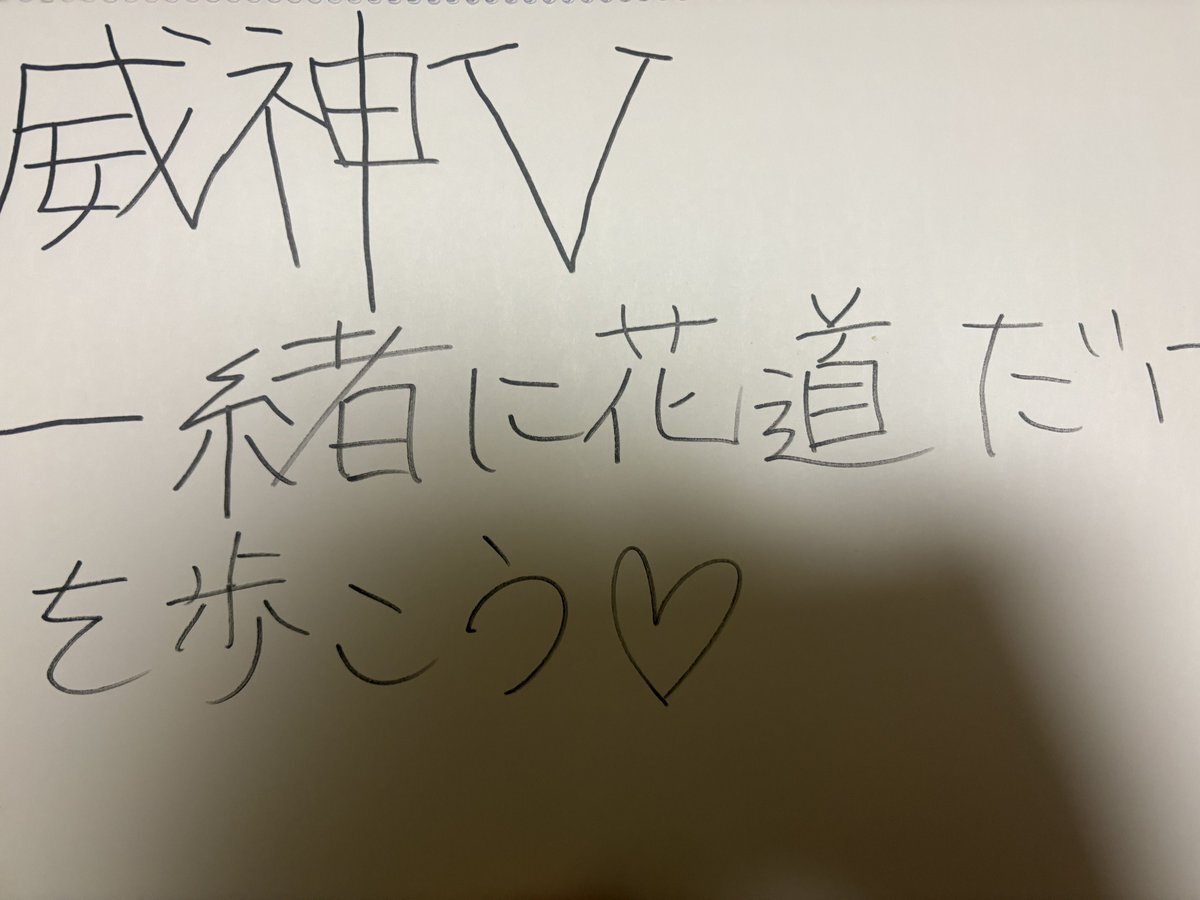 威神V
一緒に花道だけ
を歩こう♡